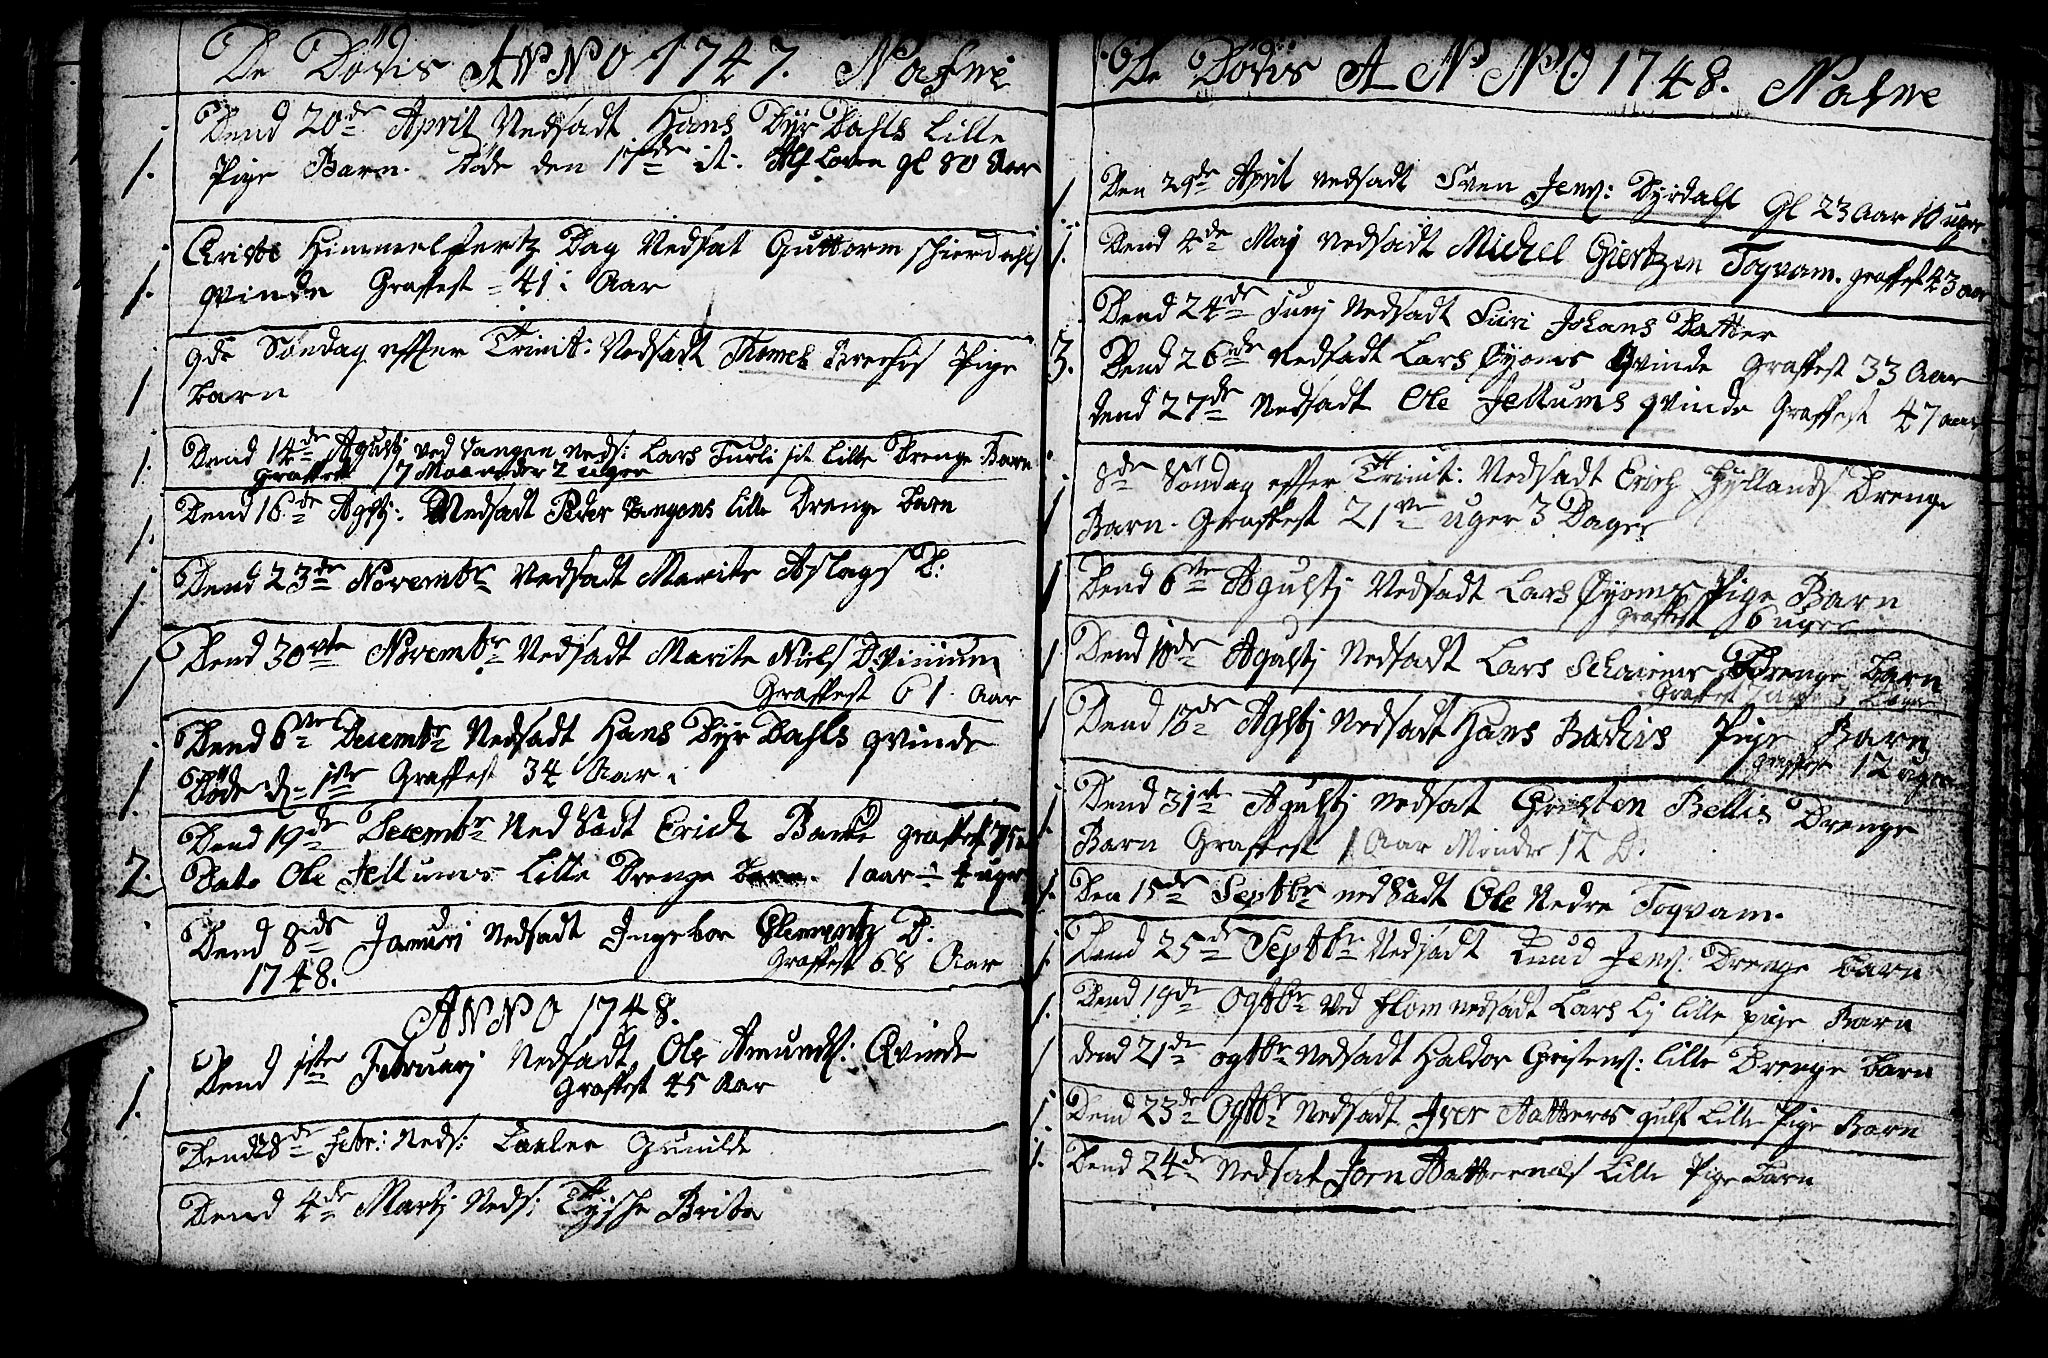 De Dödis ANNO 1747. Nafne
1. Dend 20de April Nedsadt Hans Dyr Dahls Lille
Pige Barn. döde den 17de it: gl 80 Aar
1. Kriste Himmelfertz Dag Nedsat Guttorm Schierdahls
qvinde Graffest 41 Aar
1 9de Söndag effter Trinit: Nedsadt Thomes Pige
Barn
1. Dend 14de Agusti ved Vangen neds: Lars Turli sit Lille Drenge Barn
Graffest 17 Maaneder 2 uger
1. Dend 16de Agsti: Nedsadt Peder Vangens lille Drenge Barn
1. Dend 23de Novembr Nedsadt Marite Aslags D:
1 Dend 30vte Novembr Nedsadt Marite Niels D:
Graffest 61 Aar
1. Dend 6te Decembr Nedsadt Hans Dyr Dahls qvinde
Döde d= 1ste Graffest 34 Aar
2. Dend 19de Decembr Nedsadt Erich Graffest 75
Dato Ole Jellums Lille Drenge Barn. 1 aar 4 uger
Dend 8de Januri Nedsadt Ingebor Clementz D:
1748. Graffest 68 Aar
ANNO 1748.
1. Dend 1ste Februarj Nedsadt Ole Amunds: Qvinde
Graffest 45 Aar
Dend 28de Febr: Neds: Gunilde
Dend 4de Martj Neds: Tysche Brite
De Dödis ANNO 1748. Nafne
1 Den 29de April nedsadt Sven Jens: Dyrdahl Gl 23 Aar 10 uger
1. Dend 4de Maj Nedsadt Michel Giertzen Togvam. graffest 43 aar
Dend 24de Junj Nedsadt Siri Johans Datter
3. Dend 26de Nedsadt Lars Øyoms Qvinde Graffest 33 Aar
dend 27de Nedsadt Ole Jellums qvinde Graffest 47 aar
1 8de Söndag effter Trinit: Nedsadt Erich Hyllands Drenge
Barn. Graffest 21ve uger 3 Dager
1 Dend 6te Agustj Nedsadt Lars Øyoms Pige Barn
Graffest 6 uger
1 Dend 10de Agustj Nedsadt Lars Drenge Barn
Graffest
1 Dend 18de Agstj Nedsadt Hans Pige Barn
Graffest 12 uger
1. Dend 31te Agustj Nedsat Christen Bellis Drenge
Barn Graffest 1 Aar Mindre 12 D.
1. Den 15de Septbr nedsadt Ole Nedre Togvam.
1. Dend 25de Septbr Nedsadt Knud Jens: Drenge Barn
1. Dend 19de Ogtbr Ved Flom nedsadt Lars Lj lille pige Barn
1 dend 21de ogtbr Nedsadt Haldor Christens: lille Drenge Barn
1. Dend 23de Ogtbr Nedsadt Iver Lille Pige Barn
1. Dend 24de Nedsat Lille Pige Barn